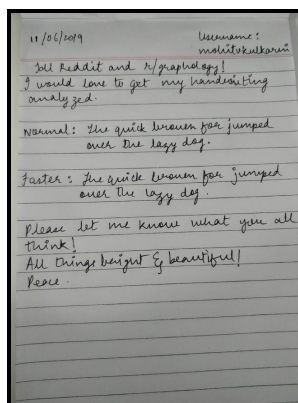 11/06/2019 Username:
mohitvkulkarni
Hi Reddit and r/graphology!
I would love to get my handwriting
analyzed.
Normal: The quick brown fox jumped
over the lazy dog.
Faster: The quick brown fox jumped
over the lazy dog.
Please let me know what you all
think!
All things bright & beautiful!
Peace.